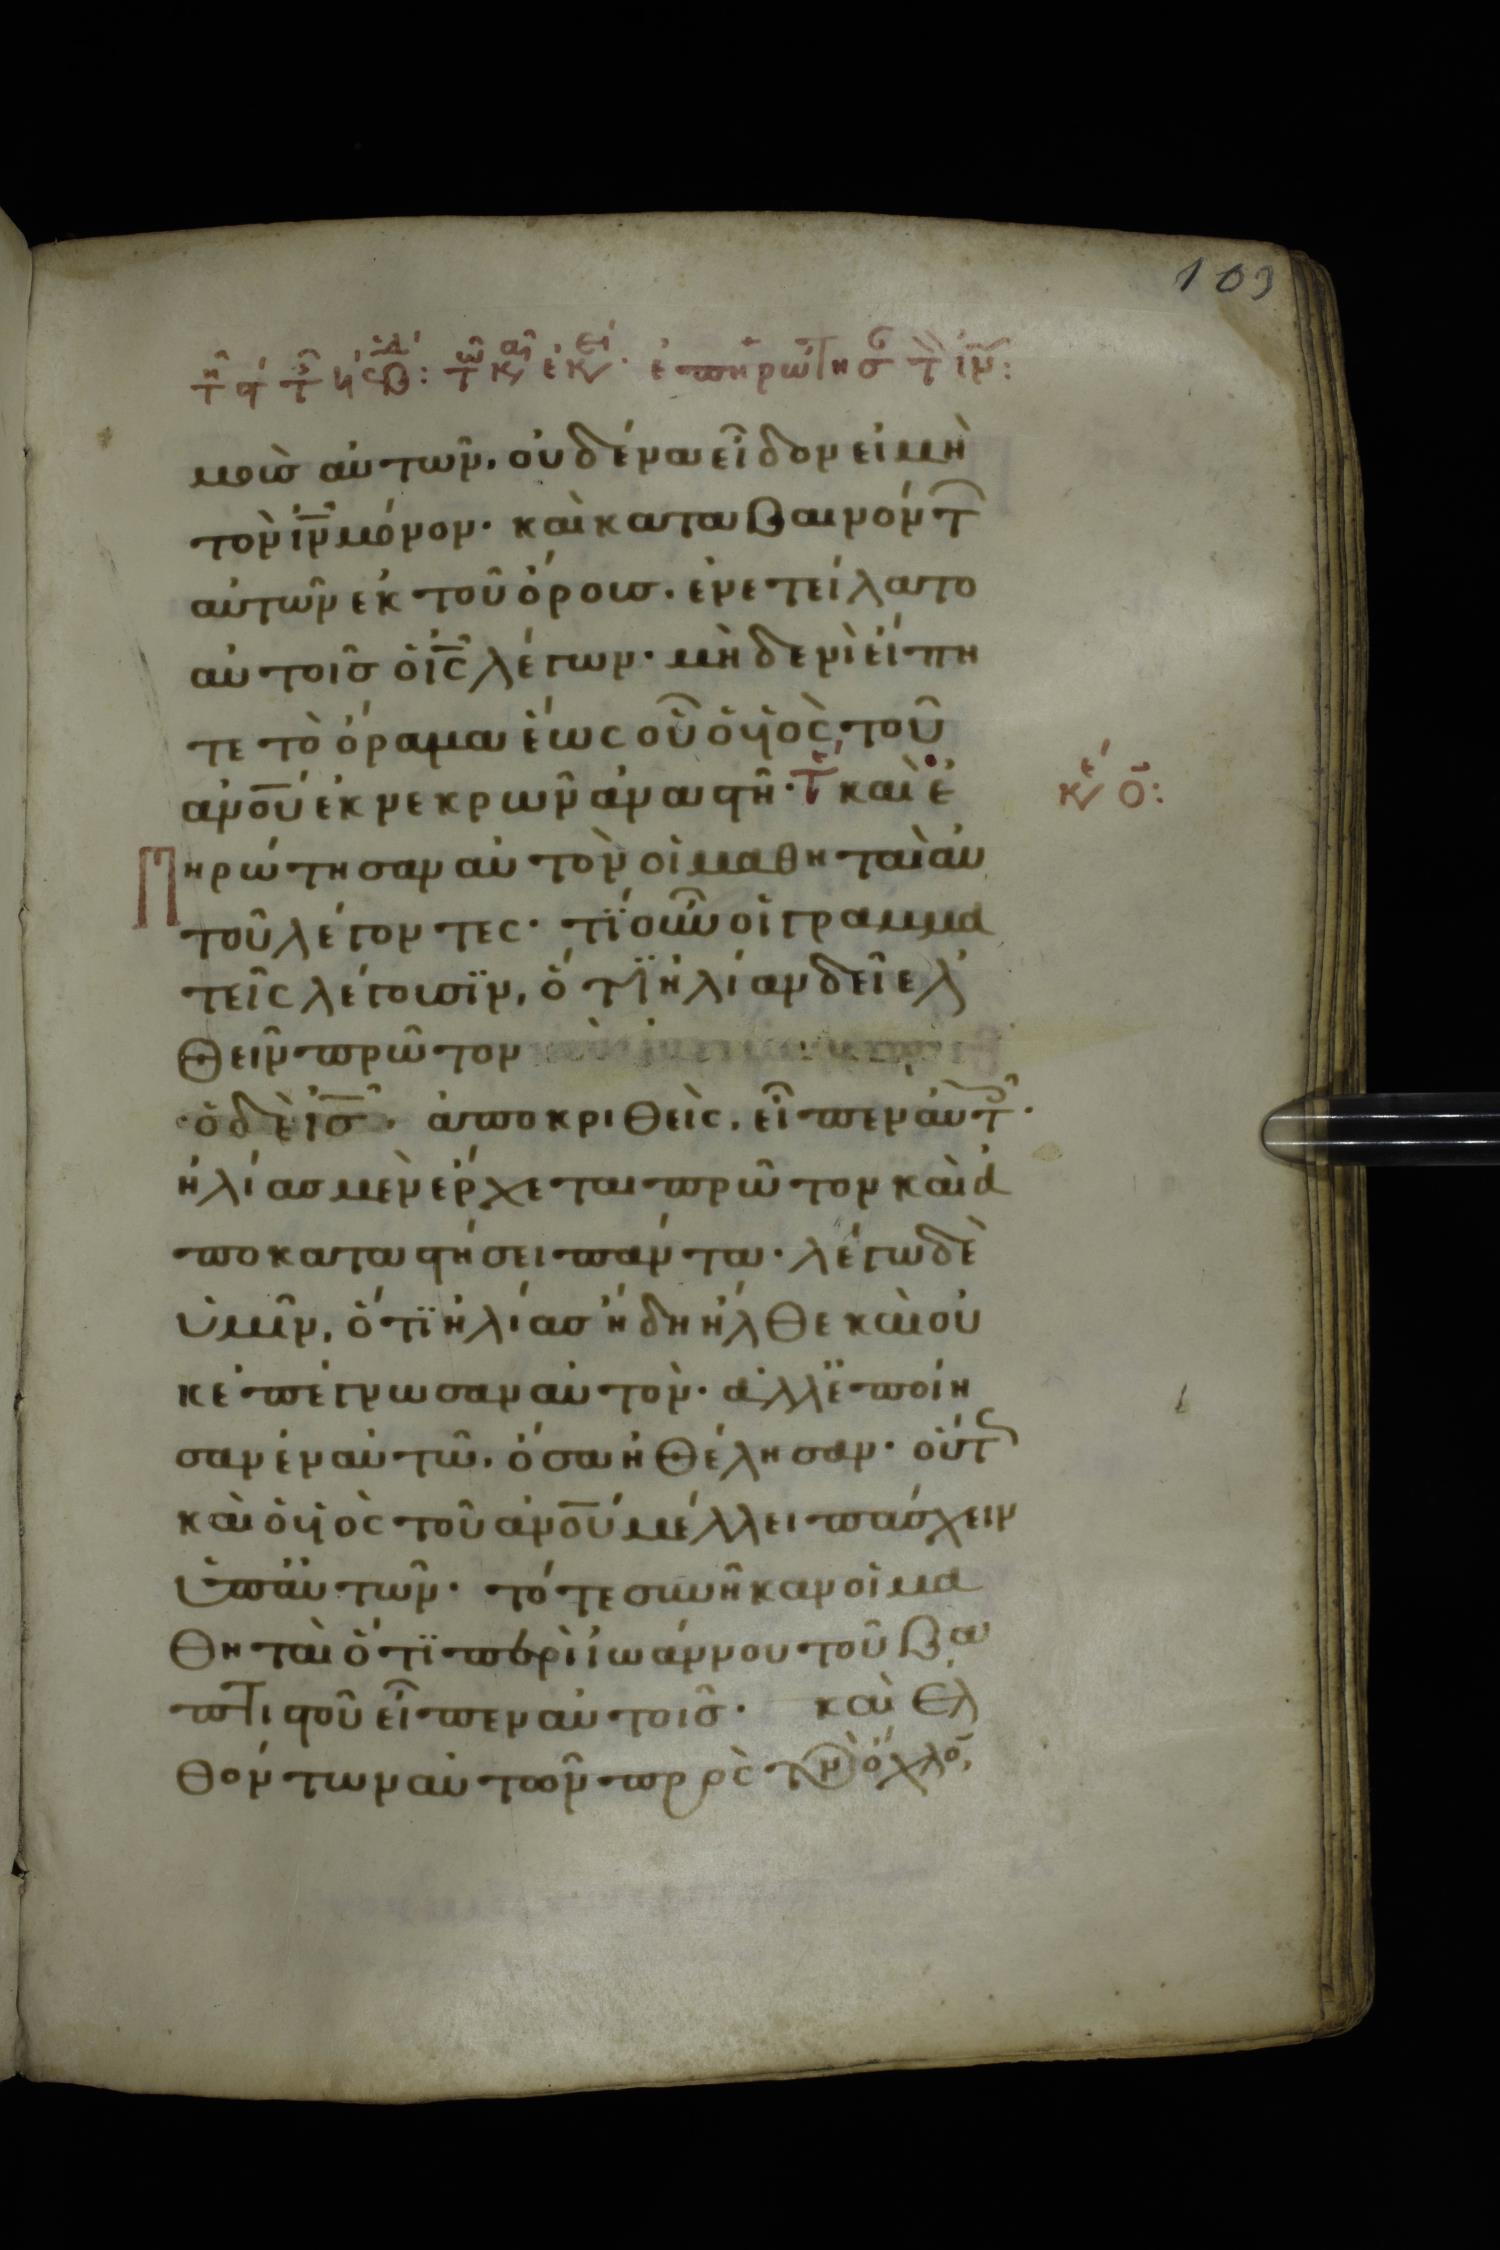 103
ἐπηρώτησ τ ιν:
μοὺσ αὐτῶν, οὐδένα εἶδον εἰ μὴ
τὸν ἰν μόνον· καὶ καταβαινόντ
αὐτῶν ἐκ τοῦ ὄρουσ, ἐνετείλατο
αὐτοῖσ ὁ ις λέγων· μηδενὶ εἴπη
τε τὸ ὅραμα ἕως οὗ ὁ υἱὸς τοῦ
ανου ἐκ νεκρῶν ἀναστῆ· τε καὶ ἐ
κε ο:
Πηρώτησαν αὐτὸν οἱ μαθηταὶ αὐ
τοῦ λέγοντες· τί οὖν οἱ γραμμα
τεῖς λέγουσϊν, ὅτϊ ἠλίαν δεῖ ἐλ
θεῖν πρῶτον
ὁ δὲ ισ· ἀποκριθεὶς, εἶπεν αὐτ·
ἠλίασ μὲν ἔρχεται πρῶτον καὶ ἀ
ποκαταστήσει πάντα· λέγω δὲ
ὑμῖν, ὅτϊ ἠλίασ ἤδη ἦλθε καὶ οὐ
κ ἐπέγνωσαν αὐτὸν· ἀλλ ἐποίη
σαν ἐν αὐτῶ, ὅσα ἠθέλησαν· οὕτ
καὶ ὁ υἱὸς τοῦ ανου μέλλει πάσχειν
ὑπ αὐτῶν· τότε συνῆκαν οἱ μα
θηταὶ ὅτϊ περὶ ἰωάννου τοῦ βα
πτιστοῦ εἶπεν αὐτοῖσ· καὶ ἐλ
θόντων αὐτῶν πρὸς τὸν ὄχλο,